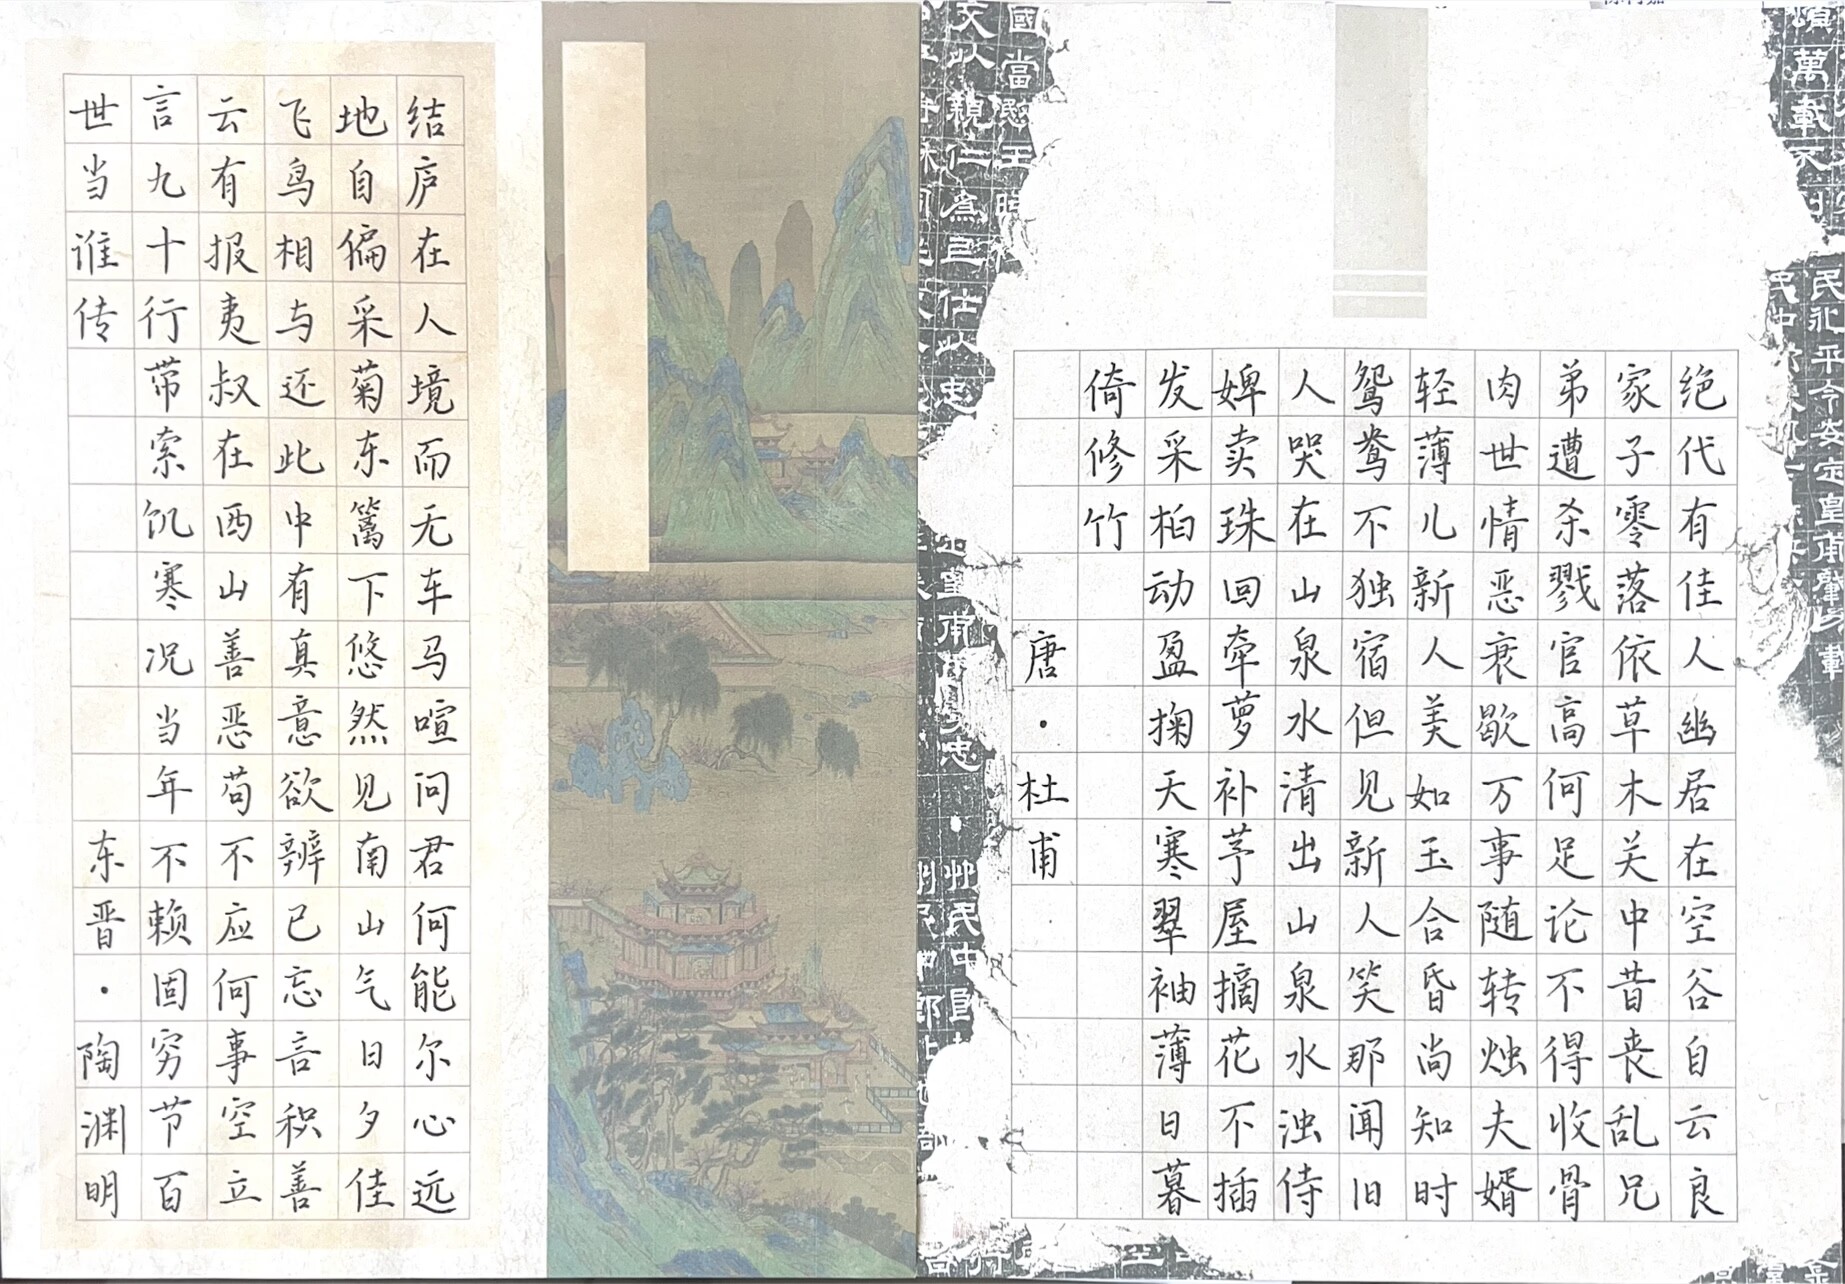 绝代有佳人幽居在空谷自云良
家子零落依草木关中昔丧乱兄
弟遭杀戮官高何足论不得收骨
肉世情恶衰歇万事随转烛夫婿
轻薄儿新人美如玉合昏尚知时
鸳鸯不独宿但见新人笑那闻旧
人哭在山泉水清出山泉水浊侍
婢卖珠回牵萝补茅屋摘花不插
发采柏动盈掬天寒翠袖薄日暮
倚修竹
唐·杜甫
结庐在人境而无车马喧问君何能尔心远
地自偏采菊东篱下悠然见南山气日夕佳
飞鸟相与还此中有真意欲辨已忘言积善
云有报夷叔在西山善恶苟不应何事空立
言九十行带索饥寒况当年不赖固穷节百
世当谁传
东晋·陶渊明